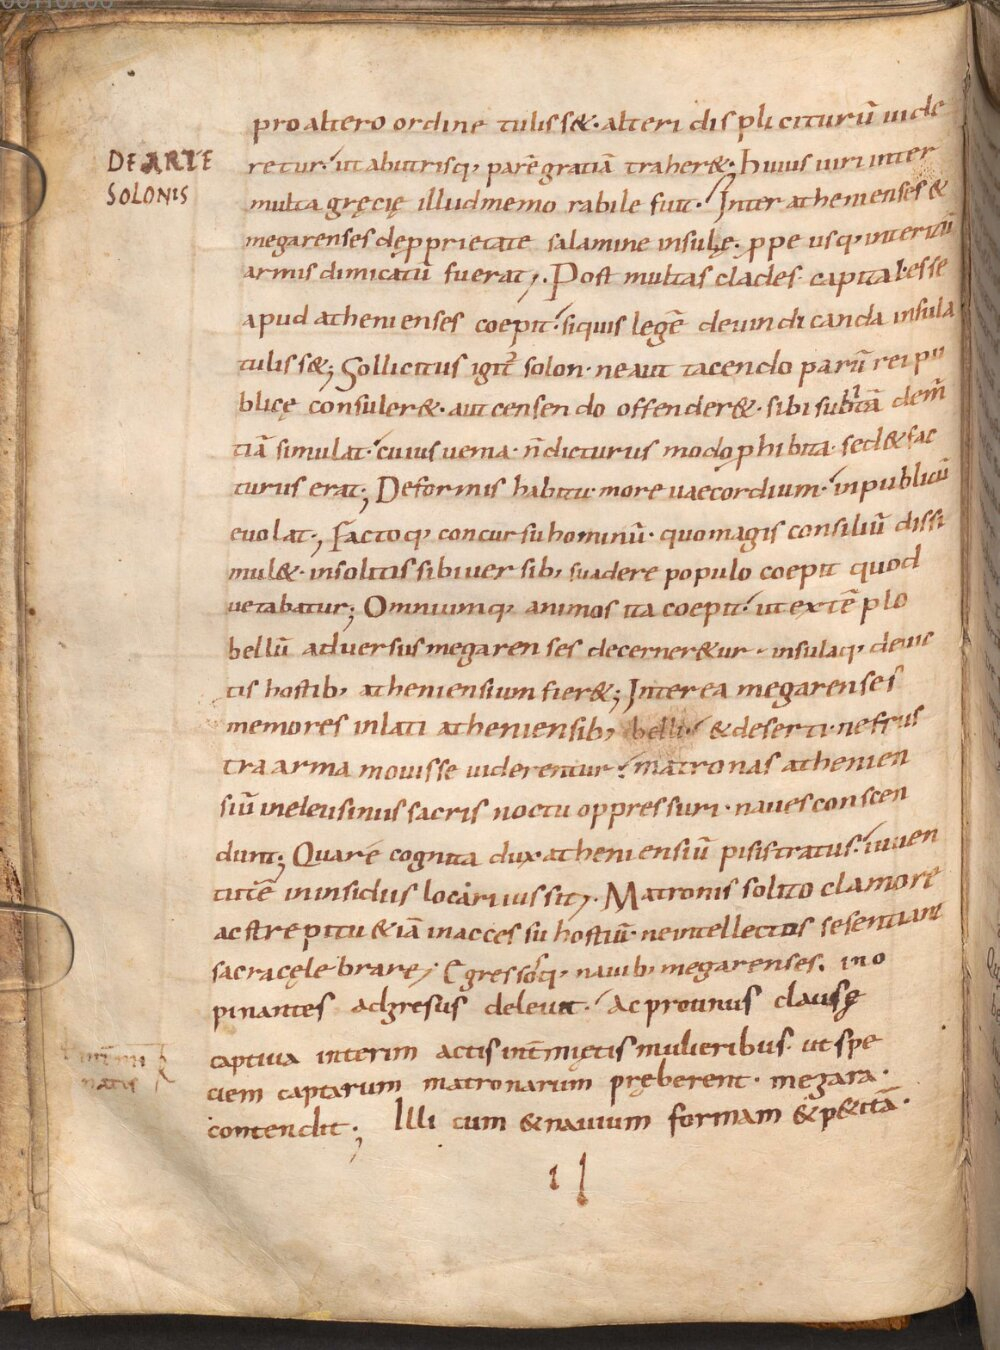 DE ARTE
SOLONIS
pro altero ordine tulisset· alteri displiciturū uide
retur· ut abutrisq; parē gratiā traheret· huius uiri inter
multa gręcię illud memo rabile fuit· Inter athenienses &
megarenses de pprietate salamine insulę· ppe usq; interitū
armis dimicatū fuerat;· Post multas clades capital· esse
apud athenienses coepit· siquis legē deuindicanda insula
tuliss&; Sollicitus igit solon· ne aut tacendo parū rei pu
blicę consuler&· aut censendo offender&· sibi subitā dem̄
tiā simulat· cuius uenia· n̄ dicturus modo phibita· sed & fac
turus erat; Deformis habitu more uaecordium· in publicū
euolat·; Factoq; concursu hominū· quo magis consiliū dissi
mul&· insolitis sibi uersib; suadere populo coepit quod
uetabatur; Omniumq; animos ita coepit· ut extē plo
bellū aduersus megarenses decerner&ur· insulaq; deuic
tis hostib; atheniensium fier&; Interea megarenses
memores inlati atheniensib; belli· & deserti· ne frus
tra arma mouisse uiderentur· matronas athenien
siū in eleusiniis sacris noctu oppressuri· naues conscen
dunt; Qua re cognita dux atheniensiū pisistratus· iuuen
tutē in insidiis locari iussit;· Matronis solito clamore
ac strepitu & iā in accessu hostiū· ne intellectos se sentiant
sacra cęlebrare; Egressosq; nauib; megarenses· ino
pinantes adgresus deleuit· Ac protinus clausę
captiua interim actis intmiętis mulieribus· ut spe
ciem captarum matronarum pręberent· megara·
contendit; Illi cum & nauium formam & p&itā·
II